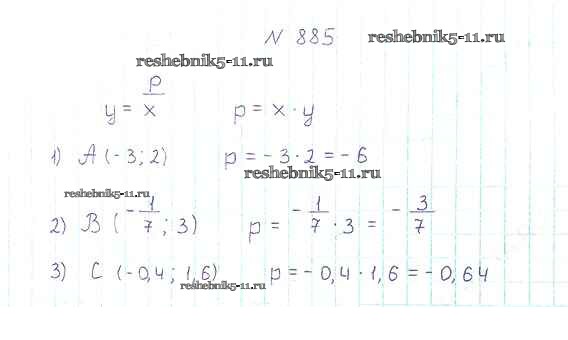 N 885 reshebnik5-11.ru
reshebnik5-11.ru
y = p/x p = x · y
1) A (-3; 2) p = -3 · 2 = -6
reshebnik5-11.ru
reshebnik5-11.ru
2) B (-1/7; 3) p = -1/7 · 3 = -3/7
3) C (-0,4; 1,6) p = -0,4 · 1,6 = -0,64
reshebnik5-11.ru